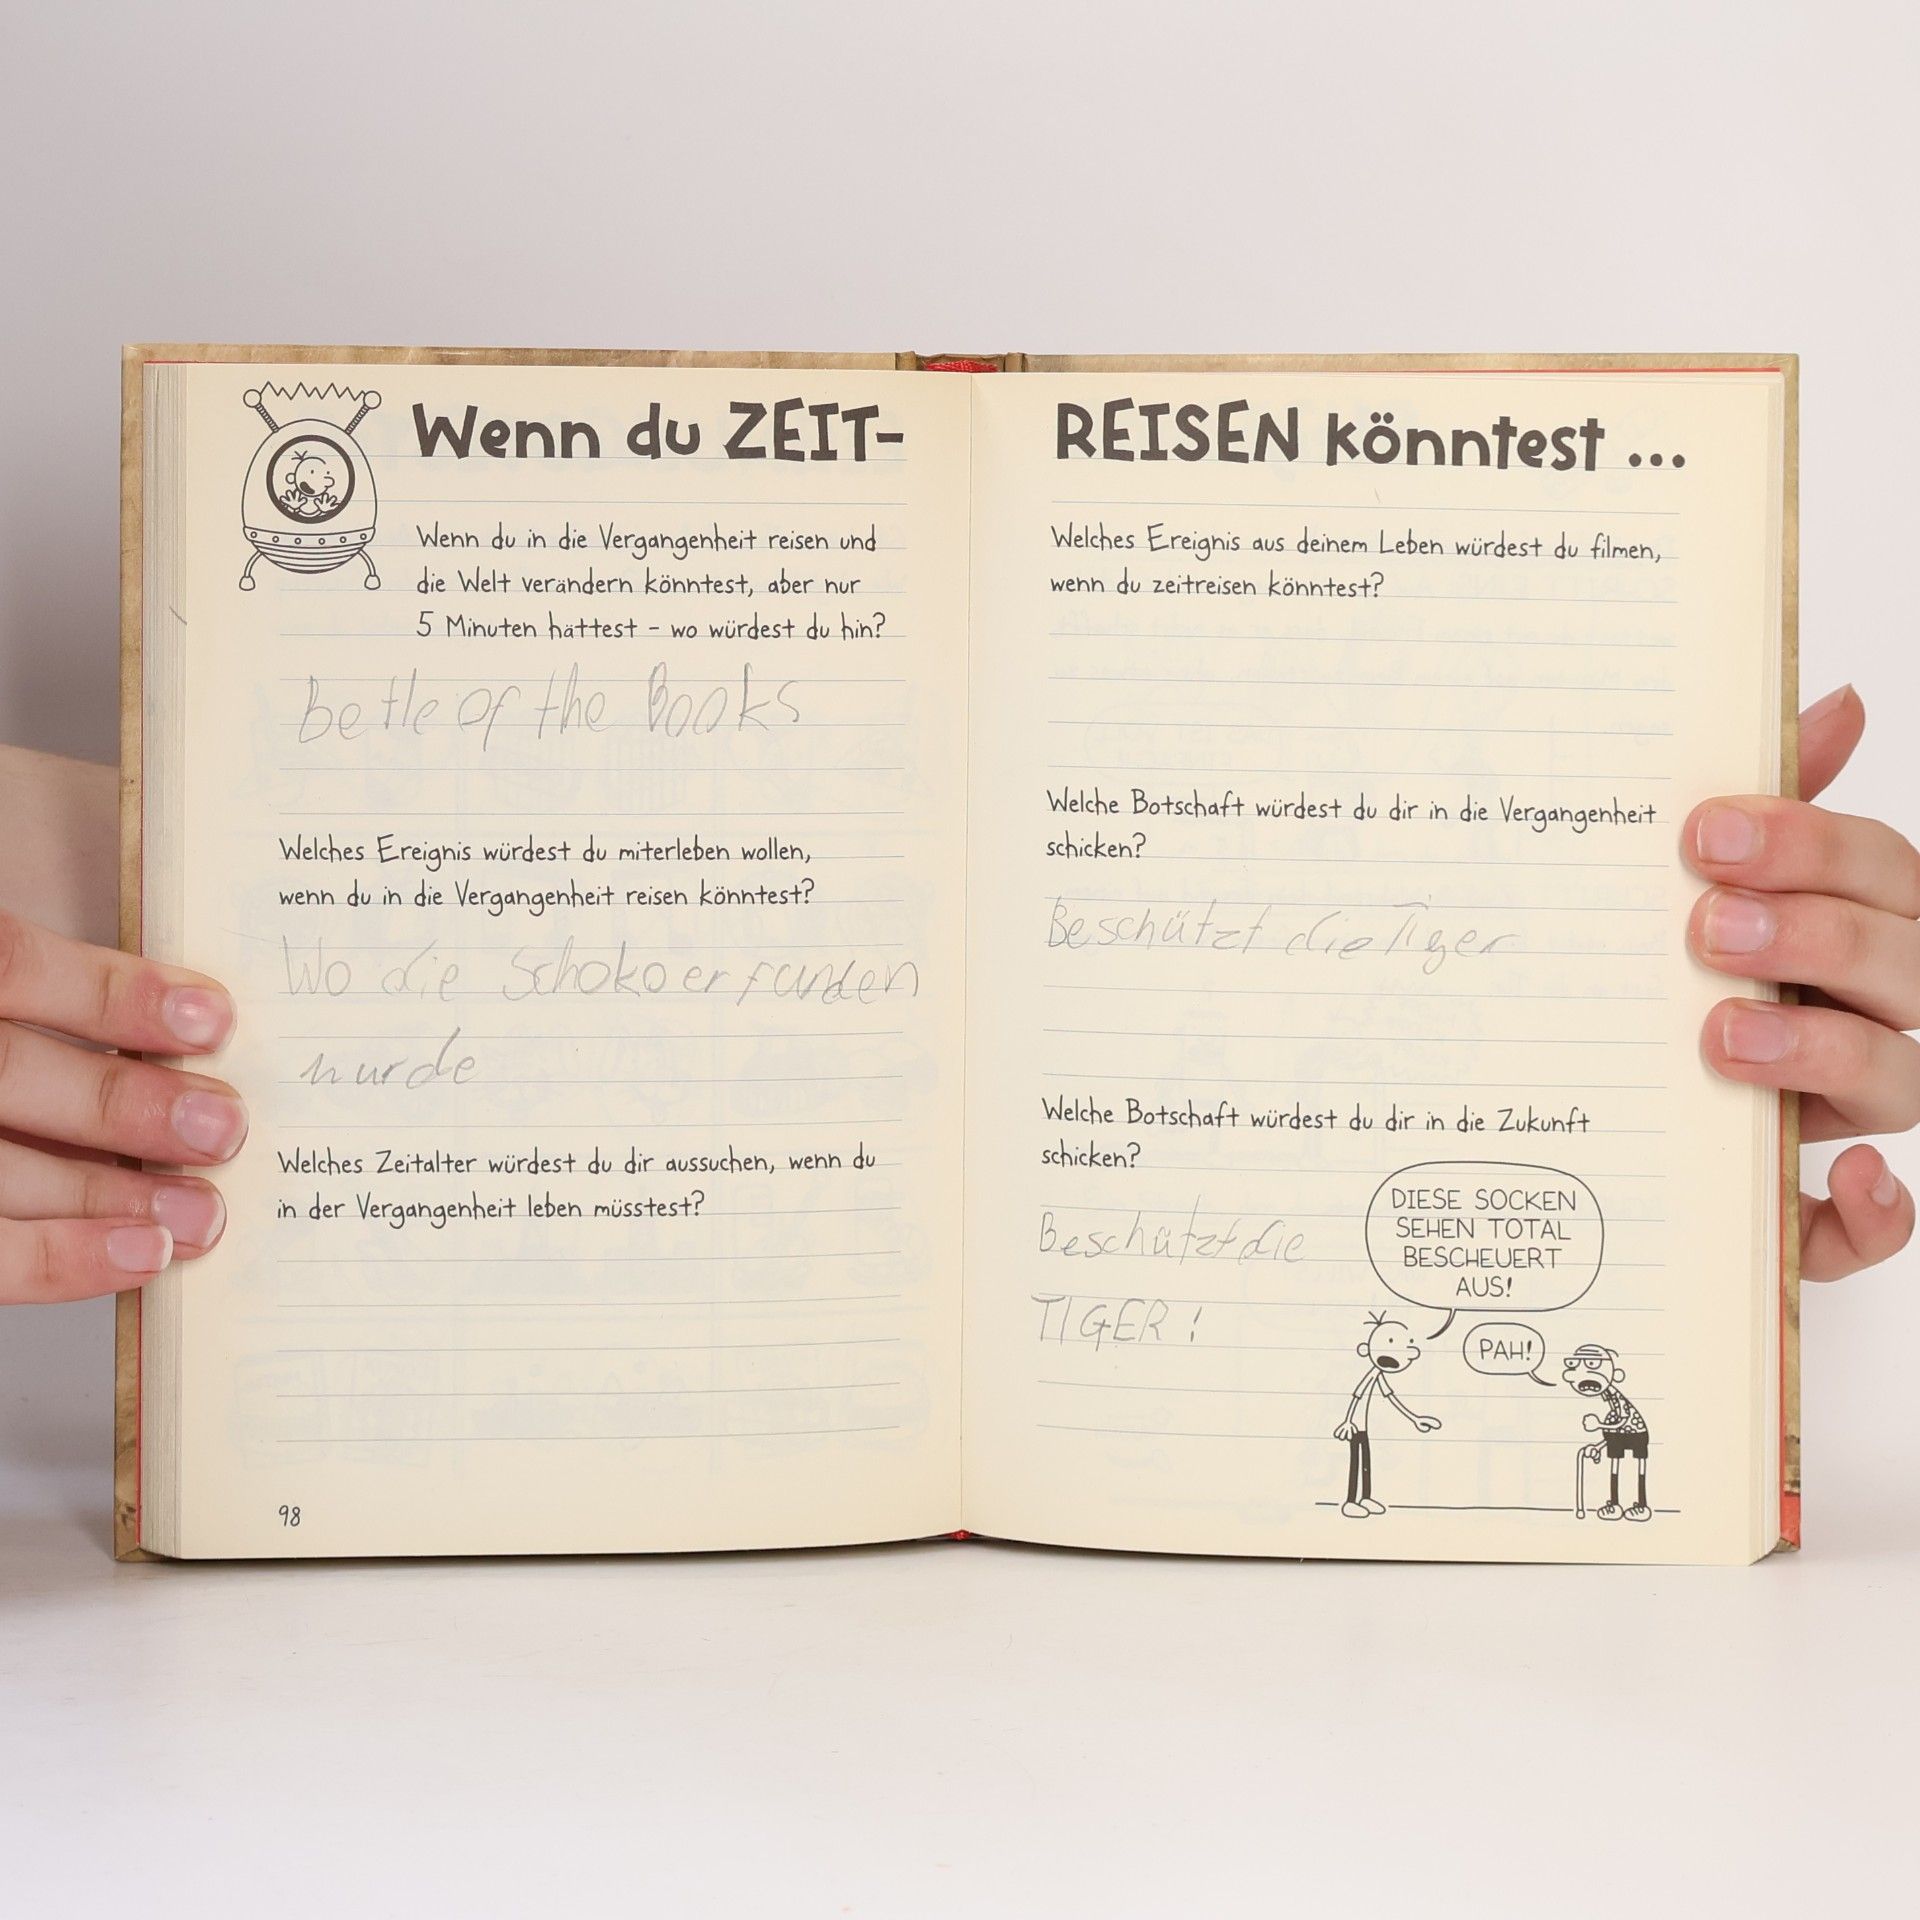 Wenn du ZEIT-
Wenn du in die Vergangenheit reisen und
die Welt verändern könntest, aber nur
5 Minuten hättest – wo würdest du hin?
Betle of the Books
Welches Ereignis würdest du miterleben wollen,
wenn du in die Vergangenheit reisen könntest?
Wo die Schoko erfunden
wurde
Welches Zeitalter würdest du dir aussuchen, wenn du
in der Vergangenheit leben müsstest?
98
REISEN könntest ...
Welches Ereignis aus deinem Leben würdest du filmen,
wenn du zeitreisen könntest?
Welche Botschaft würdest du dir in die Vergangenheit
schicken?
Beschützt die Tiger
Welche Botschaft würdest du dir in die Zukunft
schicken?
Beschützt die
TIGER!
DIESE SOCKEN
SEHEN TOTAL
BESCHEUERT
AUS!
PAH!